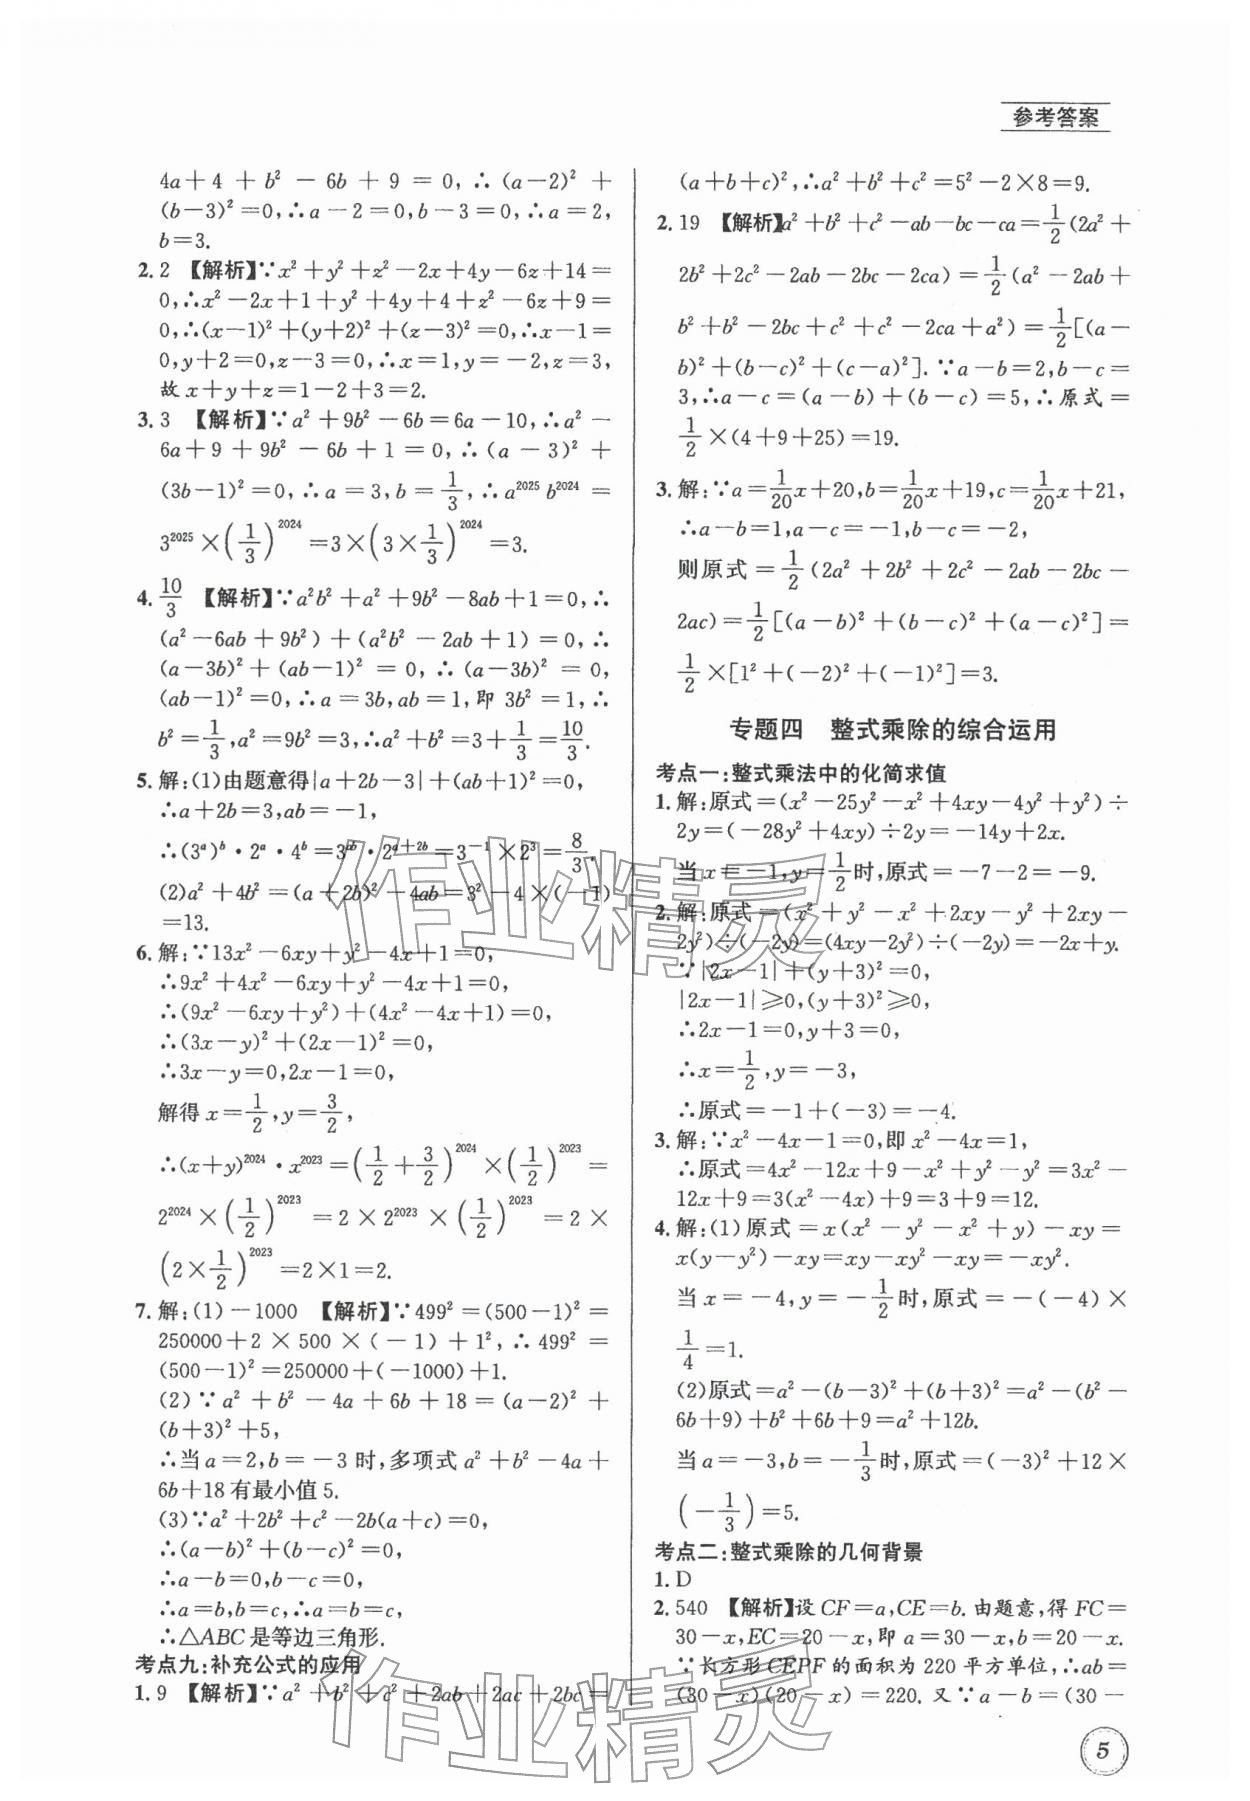 参考答案
4a+4+b²-6b+9=0,∴(a-2)²+
(b-3)²=0,∴a-2=0,b-3=0,∴a=2,
b=3.
2. 2 【解析】∵x²+y²+z²-2x+4y-6z+14=
0,∴x²-2x+1+y²+4y+4+z²-6z+9=
0,∴(x-1)²+(y+2)²+(z-3)²=0,∴x-1=
0,y+2=0,z-3=0,∴x=1,y=-2,z=3,
故x+y+z=1-2+3=2.
3. 3 【解析】∵a²+9b²-6b=6a-10,∴a²-
6a+9+9b²-6b+1=0,∴(a-3)²+
(3b-1)²=0,∴a=3,b=1/3,∴a²⁰²⁵b²⁰²⁴=
3²⁰²⁵×(1/3)²⁰²⁴=3×(3×1/3)²⁰²⁴=3.
4. 10/3 【解析】∵a²b²+a²+9b²-8ab+1=0,∴
(a²-6ab+9b²)+(a²b²-2ab+1)=0,∴
(a-3b)²+(ab-1)²=0,∴(a-3b)²=0,
(ab-1)²=0,∴a=3b,ab=1,即3b²=1,∴
b²=1/3,a²=9b²=3,∴a²+b²=3+1/3=10/3.
5. 解:(1)由题意得|a+2b-3|+(ab+1)²=0,
∴a+2b=3,ab=-1,
∴(3ᵃ)ᵇ·2ᵃ·4ᵇ=3ᵃᵇ·2ᵃ⁺²ᵇ=3⁻¹×2³=8/3.
(2)a²+4b²=(a+2b)²-4ab=3²-4×(-1)
=13.
6. 解:∵13x²-6xy+y²-4x+1=0,
∴9x²+4x²-6xy+y²-4x+1=0,
∴(9x²-6xy+y²)+(4x²-4x+1)=0,
∴(3x-y)²+(2x-1)²=0,
∴3x-y=0,2x-1=0,
解得x=1/2,y=3/2,
∴(x+y)²⁰²⁴·x²⁰²³=(1/2+3/2)²⁰²⁴×(1/2)²⁰²³=
2²⁰²⁴×(1/2)²⁰²³=2×2²⁰²³×(1/2)²⁰²³=2×
(2×1/2)²⁰²³=2×1=2.
7. 解:(1)-1000 【解析】∵499²=(500-1)²=
250000+2×500×(-1)+1²,∴499²=
(500-1)²=250000+(-1000)+1.
(2)∵a²+b²-4a+6b+18=(a-2)²+
(b+3)²+5,
∴当a=2,b=-3时,多项式a²+b²-4a+
6b+18有最小值5.
(3)∵a²+2b²+c²-2b(a+c)=0,
∴(a-b)²+(b-c)²=0,
∴a-b=0,b-c=0,
∴a=b,b=c,∴a=b=c,
∴△ABC是等边三角形.
考点九:补充公式的应用
1. 9 【解析】∵a²+b²+c²+2ab+2ac+2bc=
(a+b+c)²,∴a²+b²+c²=5²-2×8=9.
2. 19 【解析】a²+b²+c²-ab-bc-ca=1/2(2a²+
2b²+2c²-2ab-2bc-2ca)=1/2(a²-2ab+
b²+b²-2bc+c²+c²-2ca+a²)=1/2[(a-
b)²+(b-c)²+(c-a)²].∵a-b=2,b-c=
3,∴a-c=(a-b)+(b-c)=5,∴原式=
1/2×(4+9+25)=19.
3. 解:∵a=1/20x+20,b=1/20x+19,c=1/20x+21,
∴a-b=1,a-c=-1,b-c=-2,
则原式=1/2(2a²+2b²+2c²-2ab-2bc-
2ac)=1/2[(a-b)²+(b-c)²+(a-c)²]=
1/2×[1²+(-2)²+(-1)²]=3.
专题四 整式乘除的综合运用
考点一:整式乘法中的化简求值
1. 解:原式=(x²-25y²-x²+4xy-4y²+y²)÷
2y=(-28y²+4xy)÷2y=-14y+2x.
当x=-1,y=1/2时,原式=-7-2=-9.
2. 解:原式=(x²+y²-x²+2xy-y²+2xy-
2y²)÷(-2y)=(4xy-2y²)÷(-2y)=-2x+y.
∵|2x-1|+(y+3)²=0,
|2x-1|≥0,(y+3)²≥0,
∴2x-1=0,y+3=0,
∴x=1/2,y=-3,
∴原式=-1+(-3)=-4.
3. 解:∵x²-4x-1=0,即x²-4x=1,
∴原式=4x²-12x+9-x²+y²-y²=3x²-
12x+9=3(x²-4x)+9=3+9=12.
4. 解:(1)原式=x(x²-y²-x²+y)-xy=
x(y-y²)-xy=xy-xy²-xy=-xy².
当x=-4,y=-1/2时,原式=-(-4)×
1/4=1.
(2)原式=a²-(b-3)²+(b+3)²=a²-(b²-
6b+9)+b²+6b+9=a²+12b.
当a=-3,b=-1/3时,原式=(-3)²+12×
(-1/3)=5.
考点二:整式乘除的几何背景
1. D
2. 540 【解析】设CF=a,CE=b.由题意,得FC=
30-x,EC=20-x,即a=30-x,b=20-x.
∵长方形CEPF的面积为220平方单位,∴ab=
(30-x)(20-x)=220.又∵a-b=(30-
5
作业精灵
作业精灵